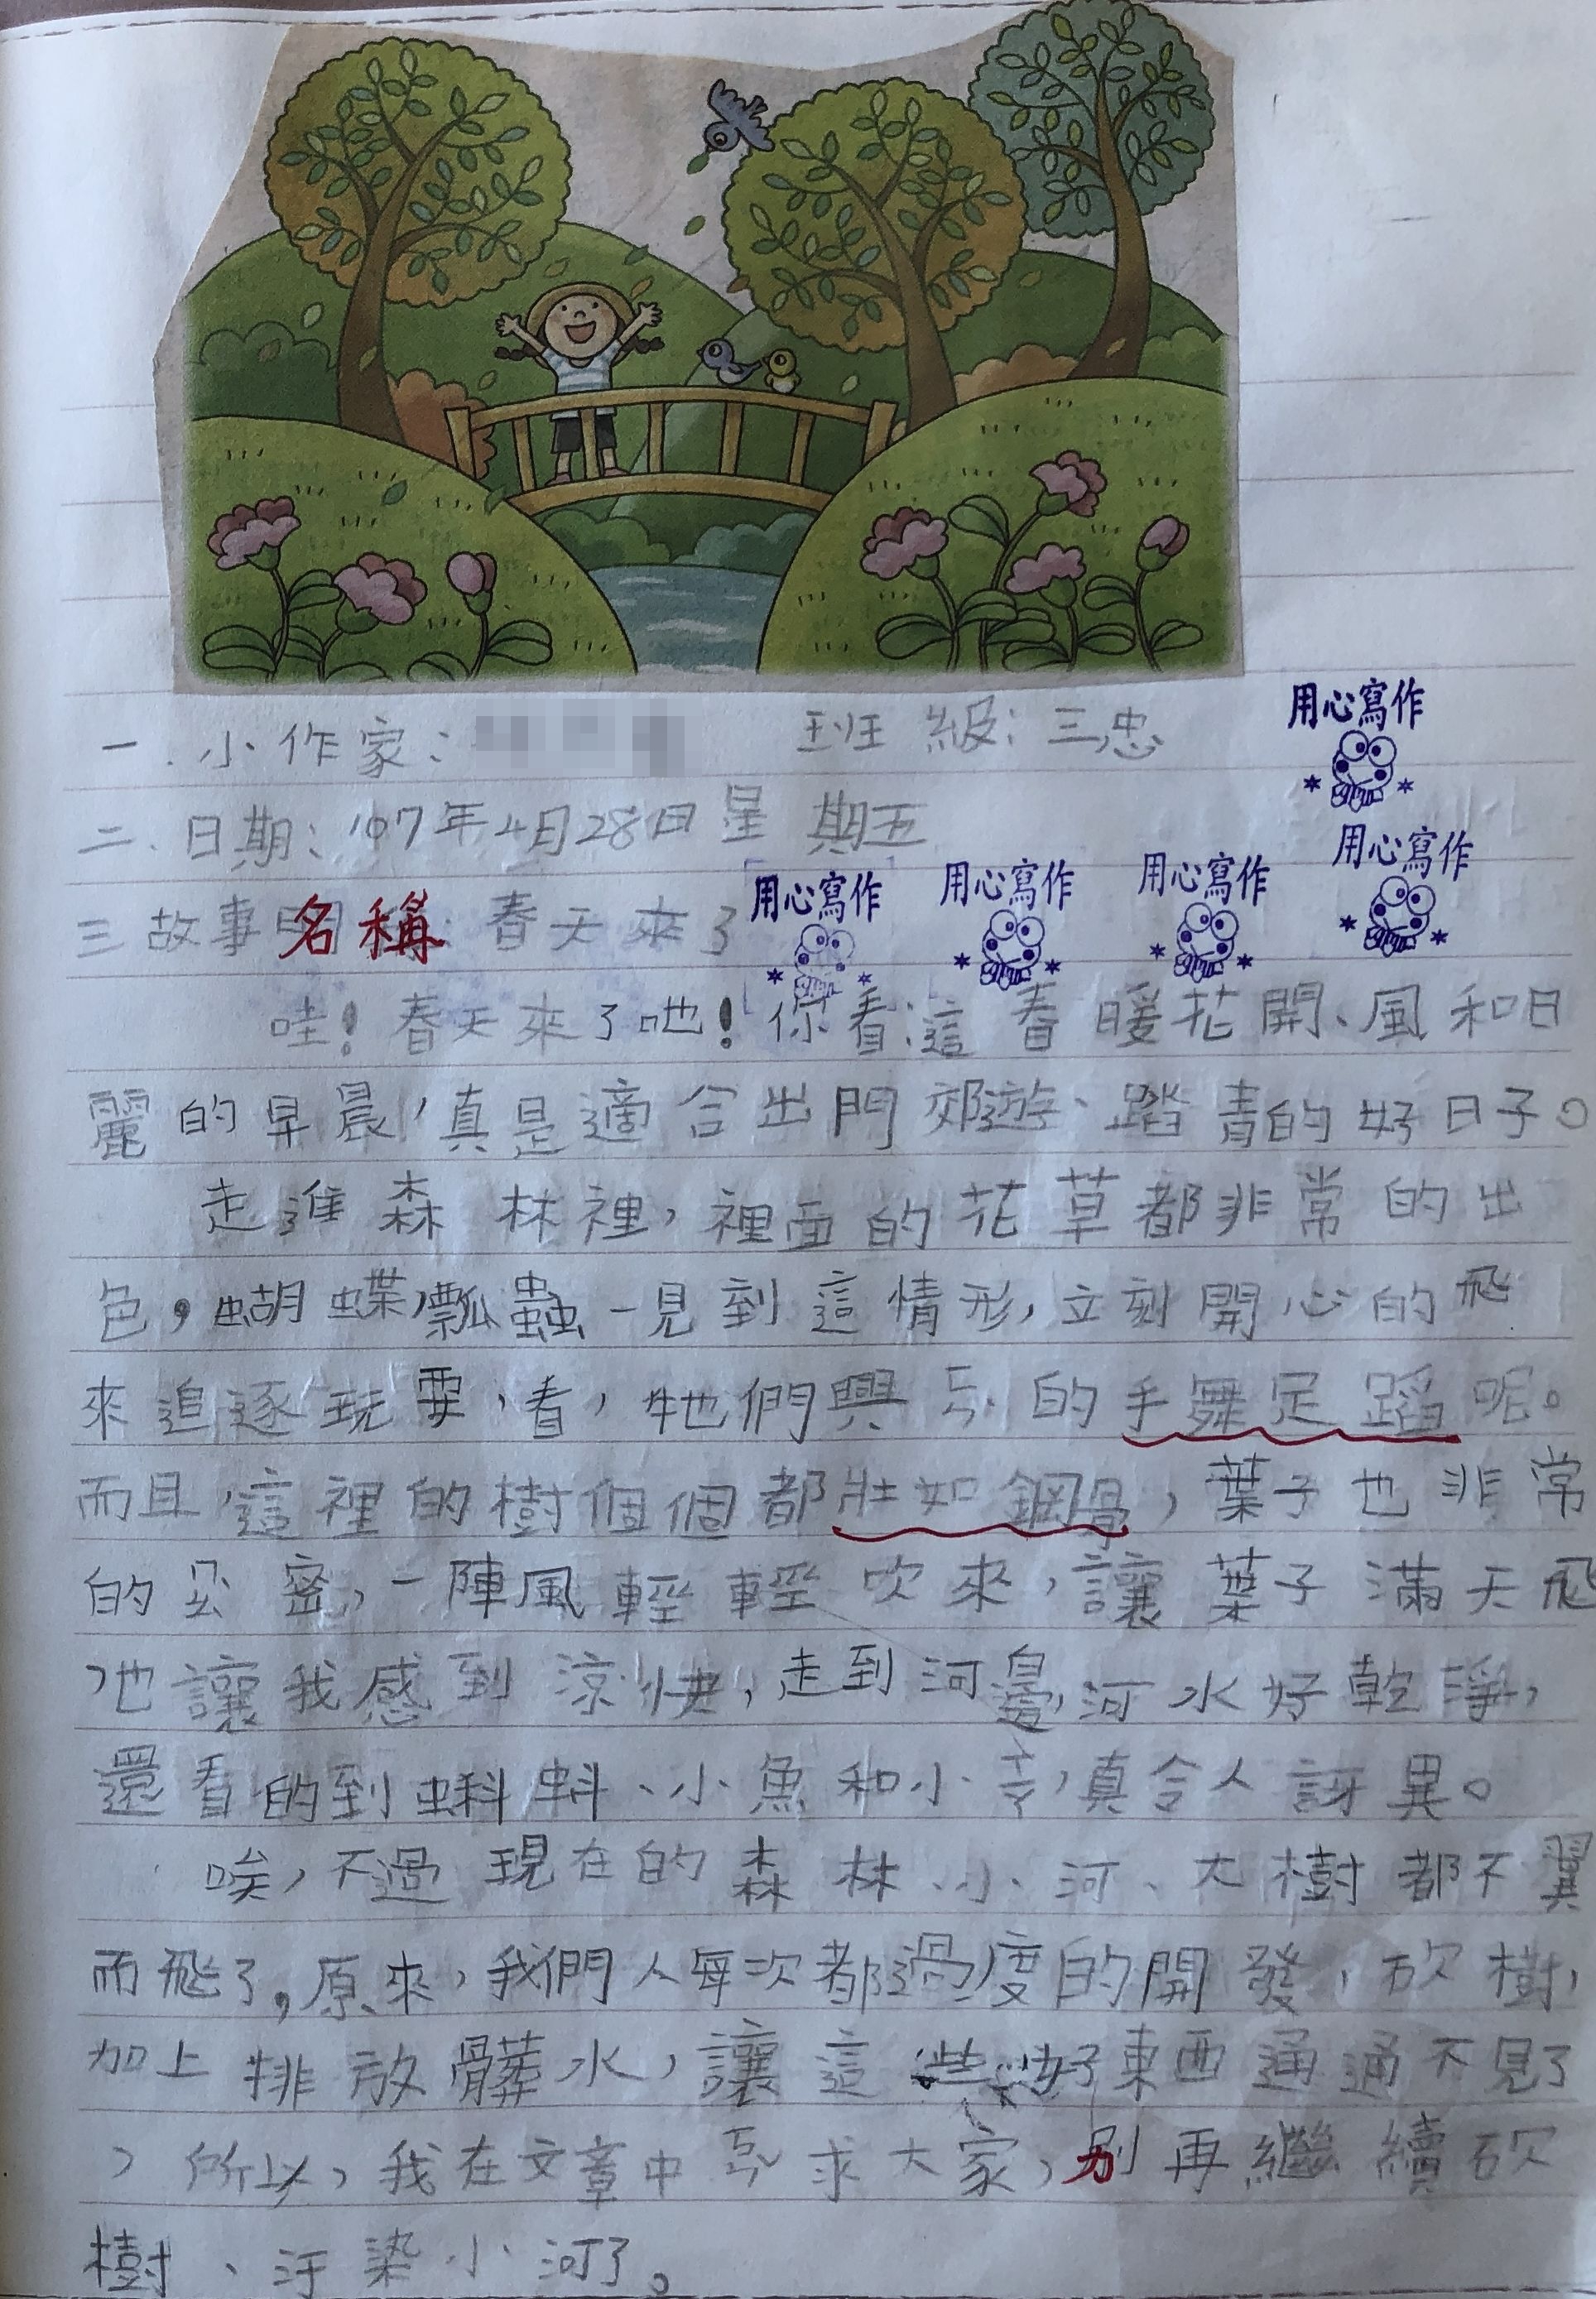 一.小作家:
班級:三忠
用心寫作
二.日期:107年4月28日星期五
用心寫作
三故事名稱:春天來了
用心寫作
用心寫作
用心寫作
哇!春天來了吔!你看這春暖花開、風和日
麗的早晨,真是適合出門郊遊、踏青的好日子。
走進森林裡,裡面的花草都非常的出
色,蝴蝶,瓢蟲一見到這情形,立刻開心的飛
來追逐玩耍,看,牠們興ㄈㄣˋ的手舞足蹈呢。
而且,這裡的樹個個都壯如鋼骨,葉子也非常
的公密,一陣風輕輕吹來,讓葉子滿天飛
,也讓我感到涼快,走到河邊,河水好乾淨,
還看的到蝌蚪、小魚和小ㄒㄧㄚ,真令人訝異。
唉,不過現在的森林、小河、大樹都不翼
而飛了,原來,我們人每次都過度的開發,砍樹,
加上排放髒水,讓這些好東西通通不見了
,所以,我在文章中ㄎㄣˇ求大家,別再繼續砍
樹、汙染小河了。